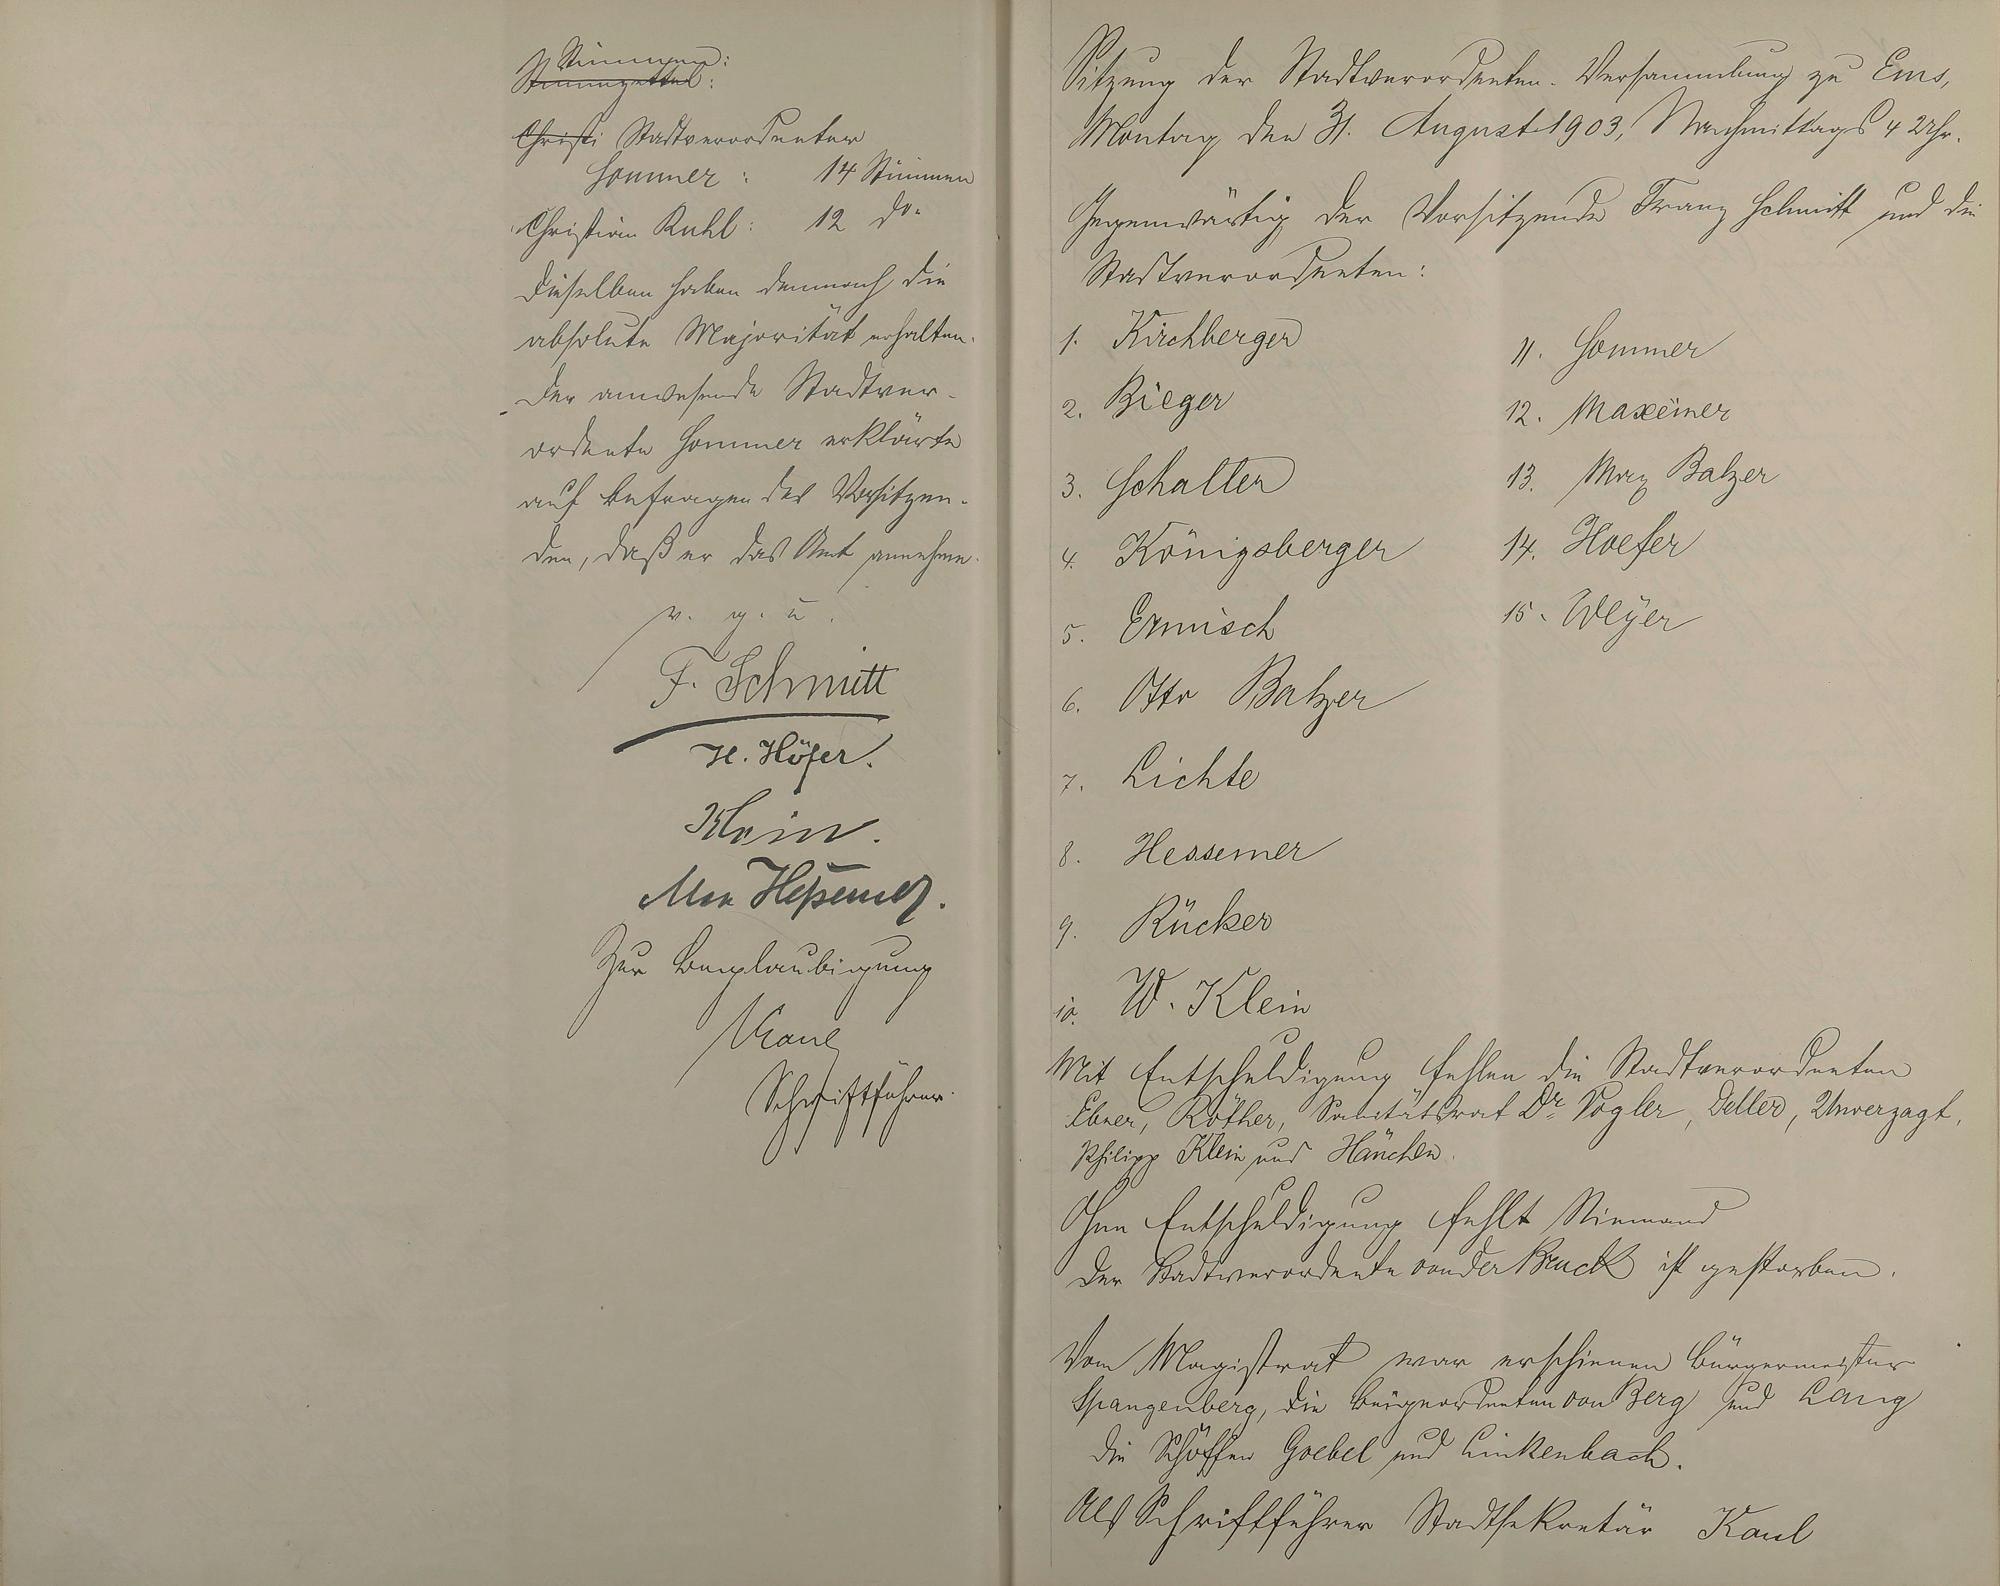 Stimmen:
Stimmzettel:
Christi Stadtverordneter
Sommer : 14 Stimmen
Christian Ruhl : 12 do.
Dieselben haben demnach die
absolute Majorität erhalten.
Der anwesende Stadtver-
ordnete Sommer erklärte
auf Befragen des Vorsitzen-
den, daß er das Amt annehme.
v. g. u.
F. Schmitt
H. Höfer.
Klein.
Max Heßemer.
Zur Beglaubigung
Kaul
Schriftführer.
Sitzung der Stadtverordneten-Versammlung zu Ems,
Montag den 31. August 1903, Nachmittags 4 Uhr.
Gegenwärtig der Vorsitzende Franz Schmitt und die
Stadtverordneten:
1. Kirchberger
2. Bieger
3. Schaller
4. Königsberger
5. Ermisch
6. Otto Balzer
7. Lichte
8. Hessemer
9. Rücker
10. W. Klein
11. Sommer
12. Maxeiner
13. Max Balzer
14. Hoefer
15. Weyer
Mit Entschuldigung fehlen die Stadtverordneten
Ebner, Röther, Sanitätsrat Dr. Vogler, Deller, Unverzagt,
Philipp Klein und Hänchen.
Ohne Entschuldigung fehlt Niemand
Der Stadtverordnete von der Bruck ist gestorben.
Vom Magistrat war erschienen Bürgermeister
Spangenberg, die Beigeordneten von Berg und Lang
die Schöffen Goebel und Linkenbach.
Als Schriftführer Stadtsekretär Kaul